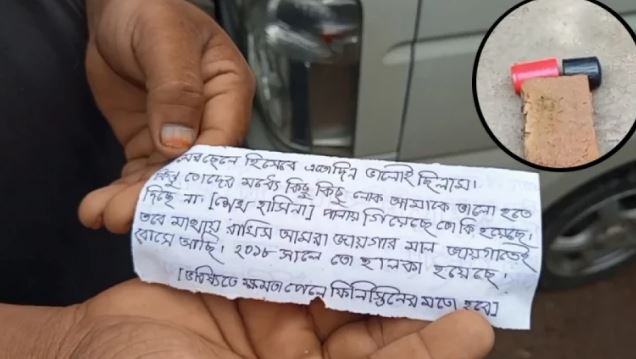 ছেলে হিসেবে এতোদিন ভালোই ছিলাম।
কিন্তু তোদের মধ্যে কিছু কিছু লোক আমাকে ভালো হতে
দিছে না। [শেখ হাসিনা] পালায় গিয়েছে তো কি হয়েছে।
তবে মাথায় রাখিস আমরা জায়গার মাল জায়গাতেই
বসে আছি। ২০১৮ সালে তো হালকা হয়েছে।
[ভবিষ্যতে ক্ষমতা পেলে ফিলিস্তিনের মতো হবে]